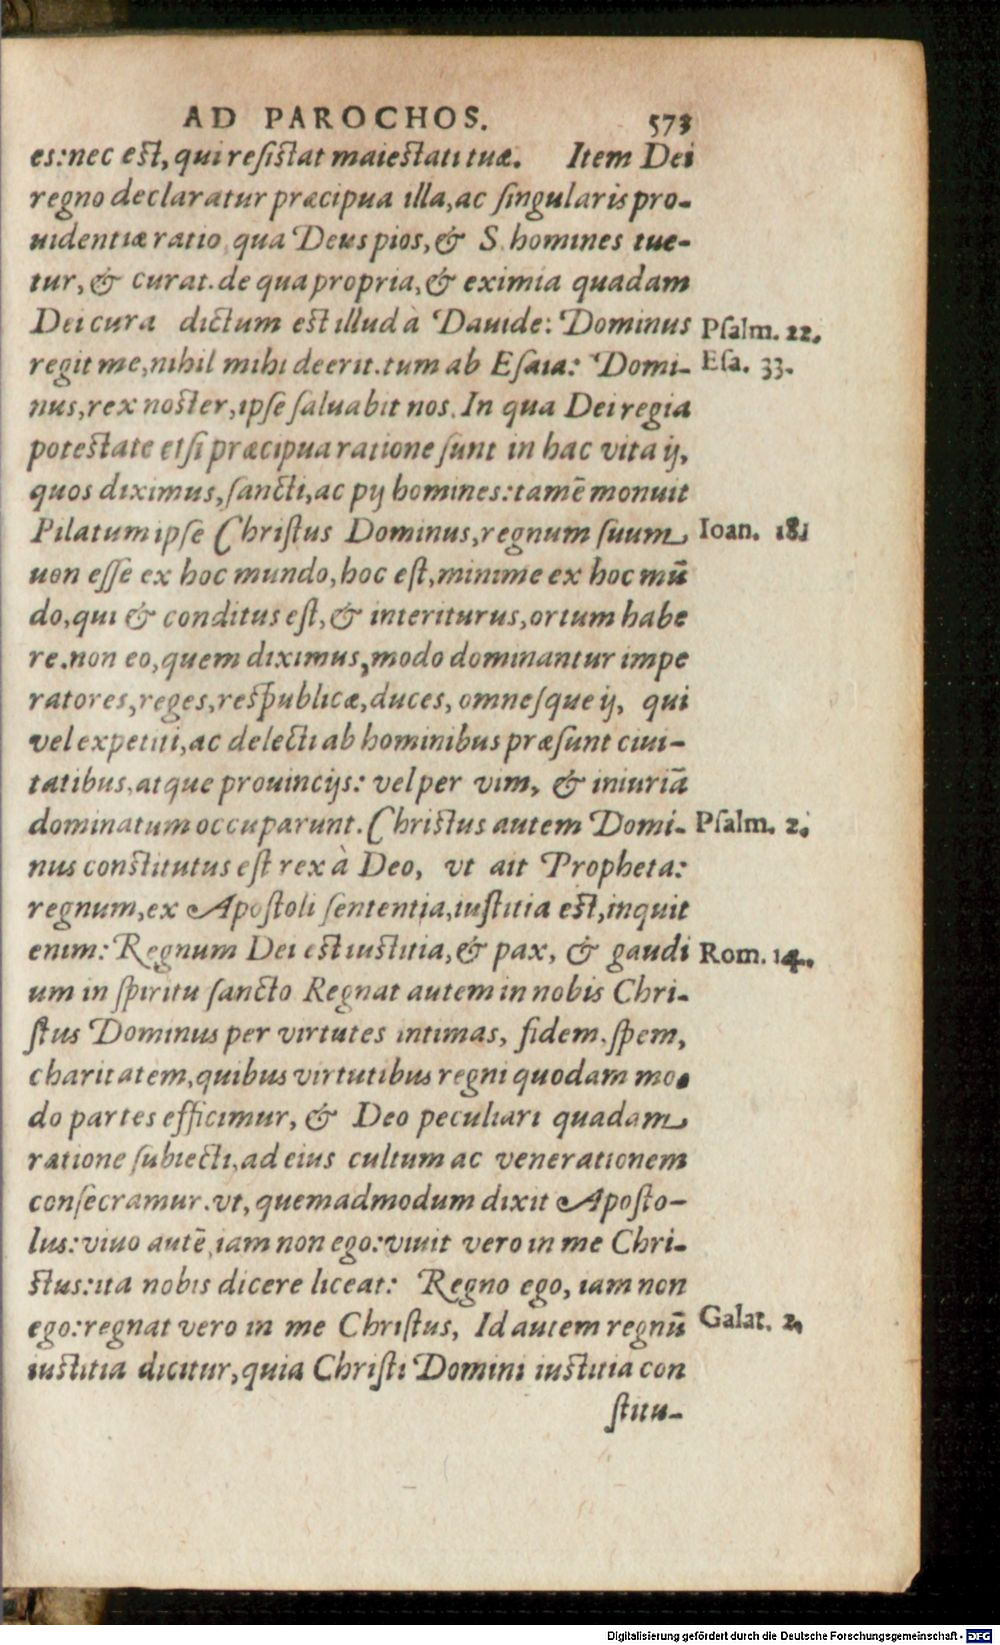 AD PAROCHOS. 573
es: nec est, qui resistat maiestati tuæ. Item Dei
regno declaratur præcipua illa, ac singularis pro-
uidentiæ ratio qua Deus pios, & S. homines tue-
tur, & curat. de qua propria, & eximia quadam
Dei cura dictum est illud à Dauide: Dominus
Psalm. 22.
regit me, nihil mihi deerit. tum ab Esaia: Domi-
Esa. 33.
nus, rex noster, ipse saluabit nos. In qua Dei regia
potestate etsi præcipua ratione sunt in hac vita ij,
quos diximus, sancti, ac pij homines: tamē monuit
Pilatum ipse Christus Dominus, regnum suum
Ioan. 18.
non esse ex hoc mundo, hoc est, minime ex hoc mū
do, qui & conditus est, & interiturus, ortum habe
re. non eo, quem diximus, modo dominantur impe
ratores, reges, respublicæ, duces, omnesque ij, qui
vel expetiti, ac delecti ab hominibus præsunt ciui-
tatibus, atque prouincijs: vel per vim, & iniuriā
dominatum occuparunt. Christus autem Domi-
Psalm. 2.
nus constitutus est rex à Deo, vt ait Propheta:
regnum, ex Apostoli sententia, iustitia est, inquit
enim: Regnum Dei est iustitia, & pax, & gaudi
Rom. 14.
um in spiritu sancto Regnat autem in nobis Chri-
stus Dominus per virtutes intimas, fidem, spem,
charitatem, quibus virtutibus regni quodam mo-
do partes efficimur, & Deo peculiari quadam
ratione subiecti, ad eius cultum ac venerationem
consecramur. vt, quemadmodum dixit Aposto-
lus: viuo autē, iam non ego: viuit vero in me Chri-
stus: ita nobis dicere liceat: Regno ego, iam non
ego: regnat vero in me Christus, Id autem regnū
Galat. 2.
iustitia dicitur, quia Christi Domini iustitia con
stitu-
Digitalisierung gefördert durch die Deutsche Forschungsgemeinschaft - DFG